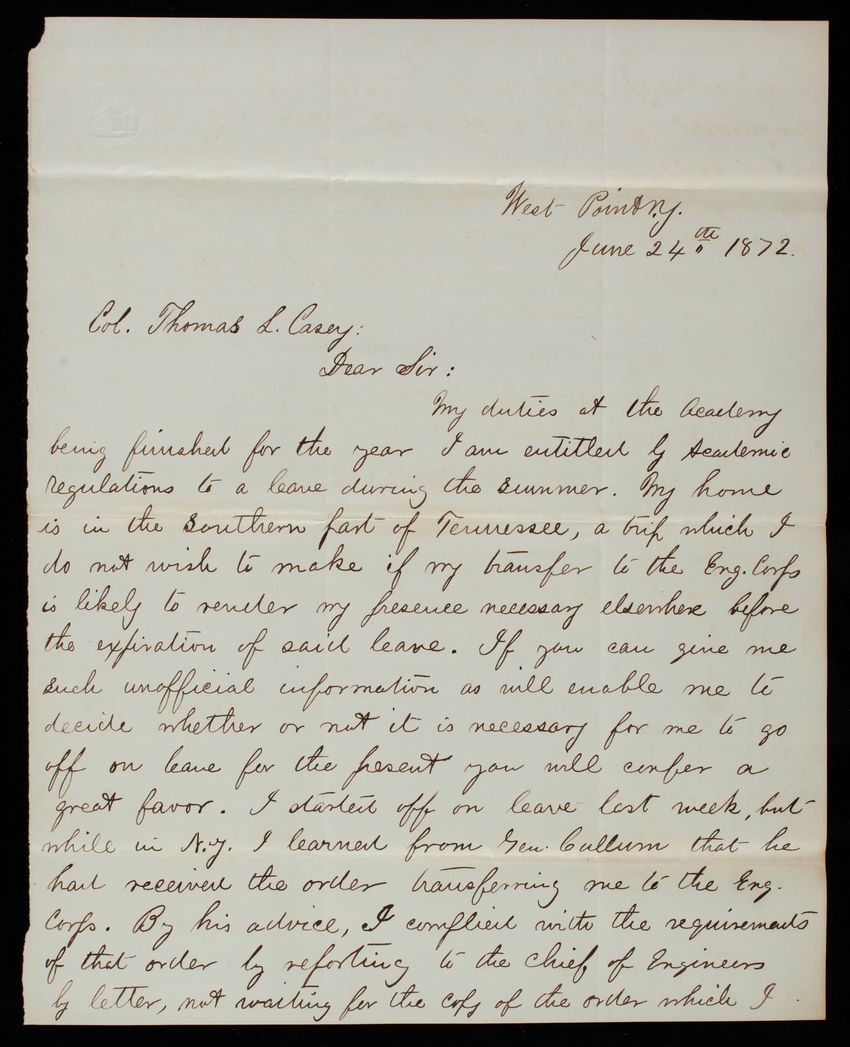 West Point N.Y.
June 24th 1872.
Col. Thomas L. Casey:
Dear Sir:
My duties at the Academy
being finished for the year I am entitled by Academic
regulations to a leave during the summer. My home
is in the Southern part of Tennessee, a trip which I
do not wish to make if my transfer to the Eng. Corps
is likely to render my presence necessary elsewhere before
the expiration of said leave. If you can give me
such unofficial information as will enable me to
decide whether or not it is necessary for me to go
off on leave for the present you will confer a
great favor. I started off on leave last week, but
while in N.Y. I learned from Gen. Cullum that he
had received the order transferring me to the Eng.
Corps. By his advice, I complied with the requirements
of that order by reporting to the Chief of Engineers
by letter, not waiting for the copy of the order which I